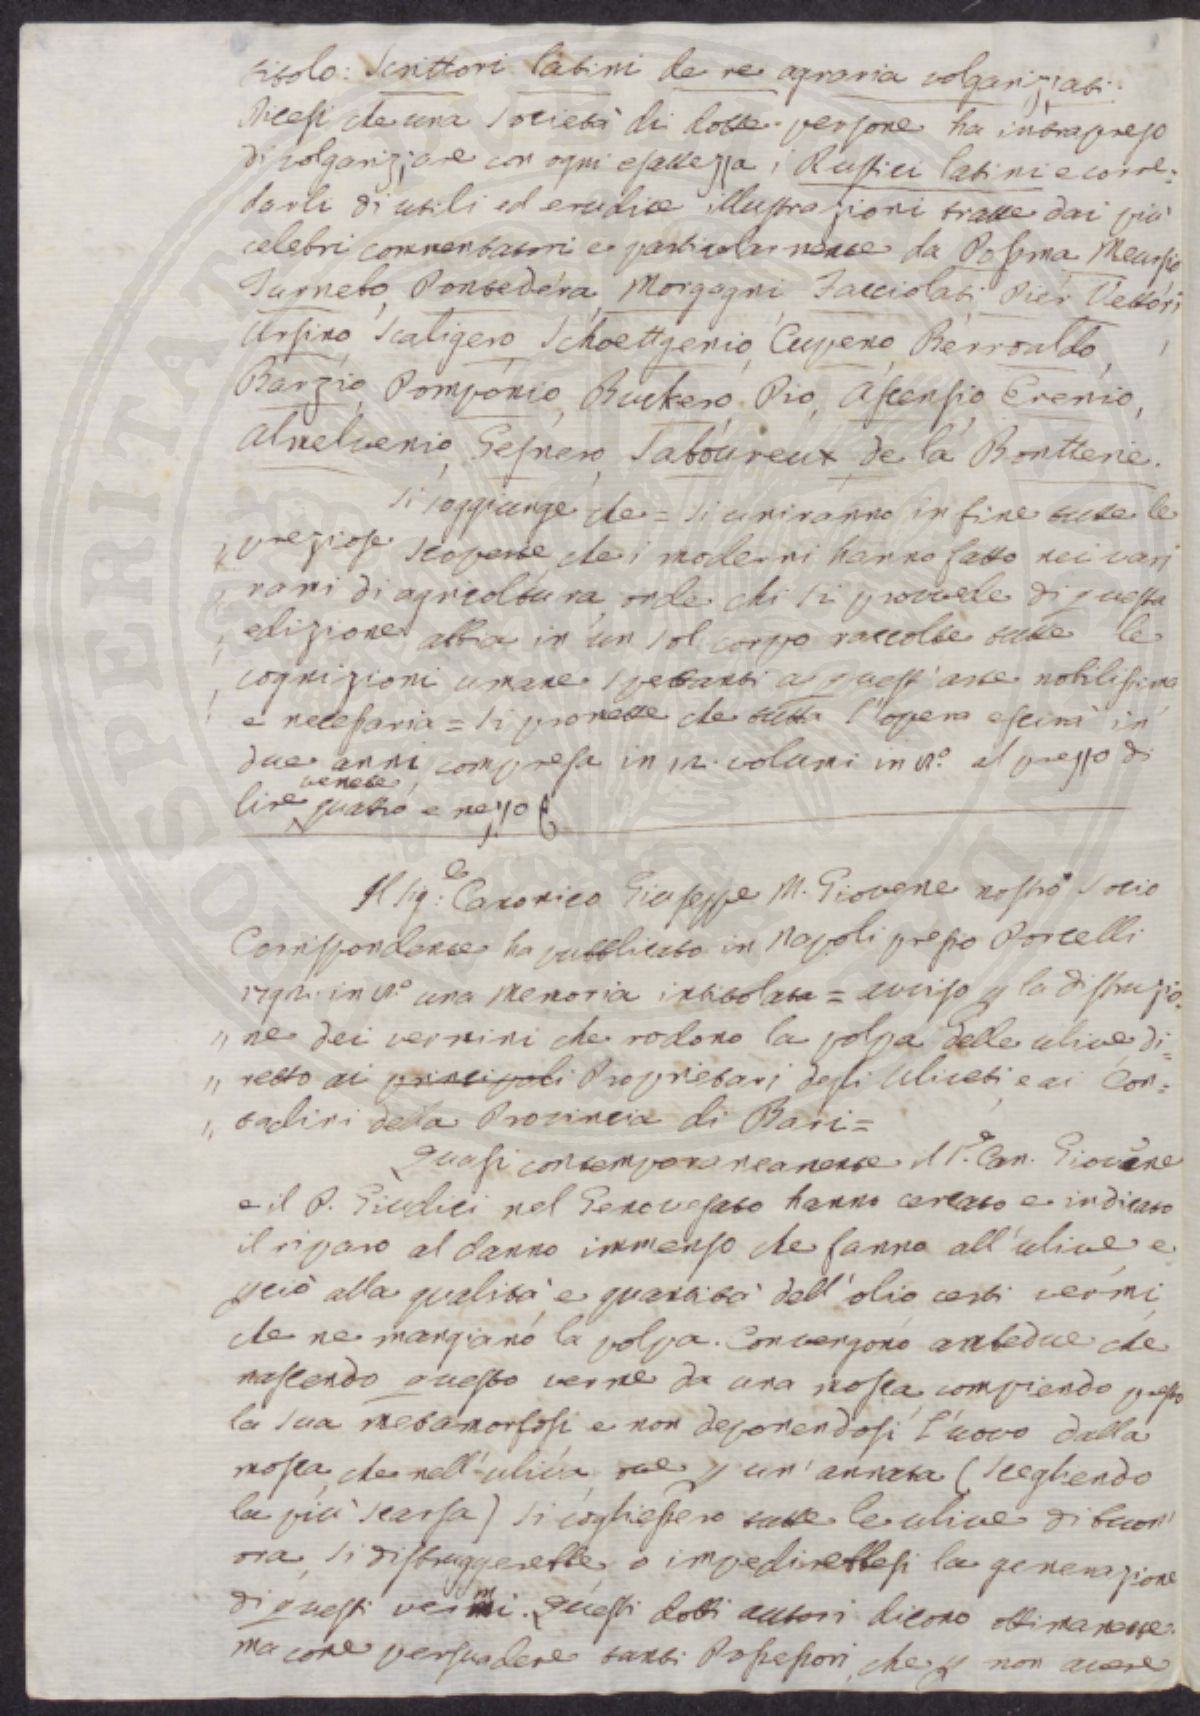 titolo: Scrittori latini de re agraria volgarizzati.
Dicesi che una Società di dotte persone ha intrapreso
di volgarizzare con ogni esattezza i Rustici latini e corre=
darli di utili ed erudite illustrazioni tratte dai più
celebri commentatori e particolarmente da Pofsma Meursio
Turnebo, Pontedera, Morgagni, Facciolati, Pier Vettori
Ursino, Scaligero, Schoettgenio, Cupero, Berroaldo,
Barzio, Pomponio, Buckero, Pio, Ascensio, Erenio,
Almelvenio, Gesnero, Saboureux de la Bontterie.
Si soggiunge che = Si uniranno in fine tutte le
„ preziose scoperte che i moderni hanno fatto nei varj
„ rami di agricoltura, onde chi si provvede di questa
„ edizione abbia in un sol corpo raccolte tutte le
„ cognizioni umane spettanti a quest'arte nobilissima
„ e necessaria = Si promette che tutta l'opera escirà in
due anni, compresa in 12. volumi in 8.° al prezzo di
lire venete quattro e mezzo
Il Sig.e Canonico Giuseppe M. Giovene nostro Socio
Corrispondente ha pubblicato in Napoli presso Porcelli
1792. in 8.° una Memoria intitolata = Avviso p la distruzio=
„ ne dei vermini che rodono la polpa delle ulive di=
„ retto ai principali Proprietarj degli Uliveti, e ai Con=
„ tadini della Provincia di Bari =
Quasi contemporaneamente il S.e Can. Giovene
e il P. Giudici nel Genovesato hanno cercato e indicato
il riparo al danno immenso che fanno all'ulive e
pciò alla qualità e quantità dell'olio certi vermi
che ne mangiano la polpa. Convengono ambedue che
nascendo questo verme da una mosca, compiendo presto
la sua metamorfosi e non deponendosi l'uovo dalla
mosca, che nell'uliva, se p un'annata (scegliendo
la più scarsa) si cogliessero tutte le ulive di buon'
ora, si distruggerebbe o impedirebbesi la generazione
di questi vermi. Questi dotti autori dicono ottimamente.
ma come persuadere tanti Possessori, che p non avere